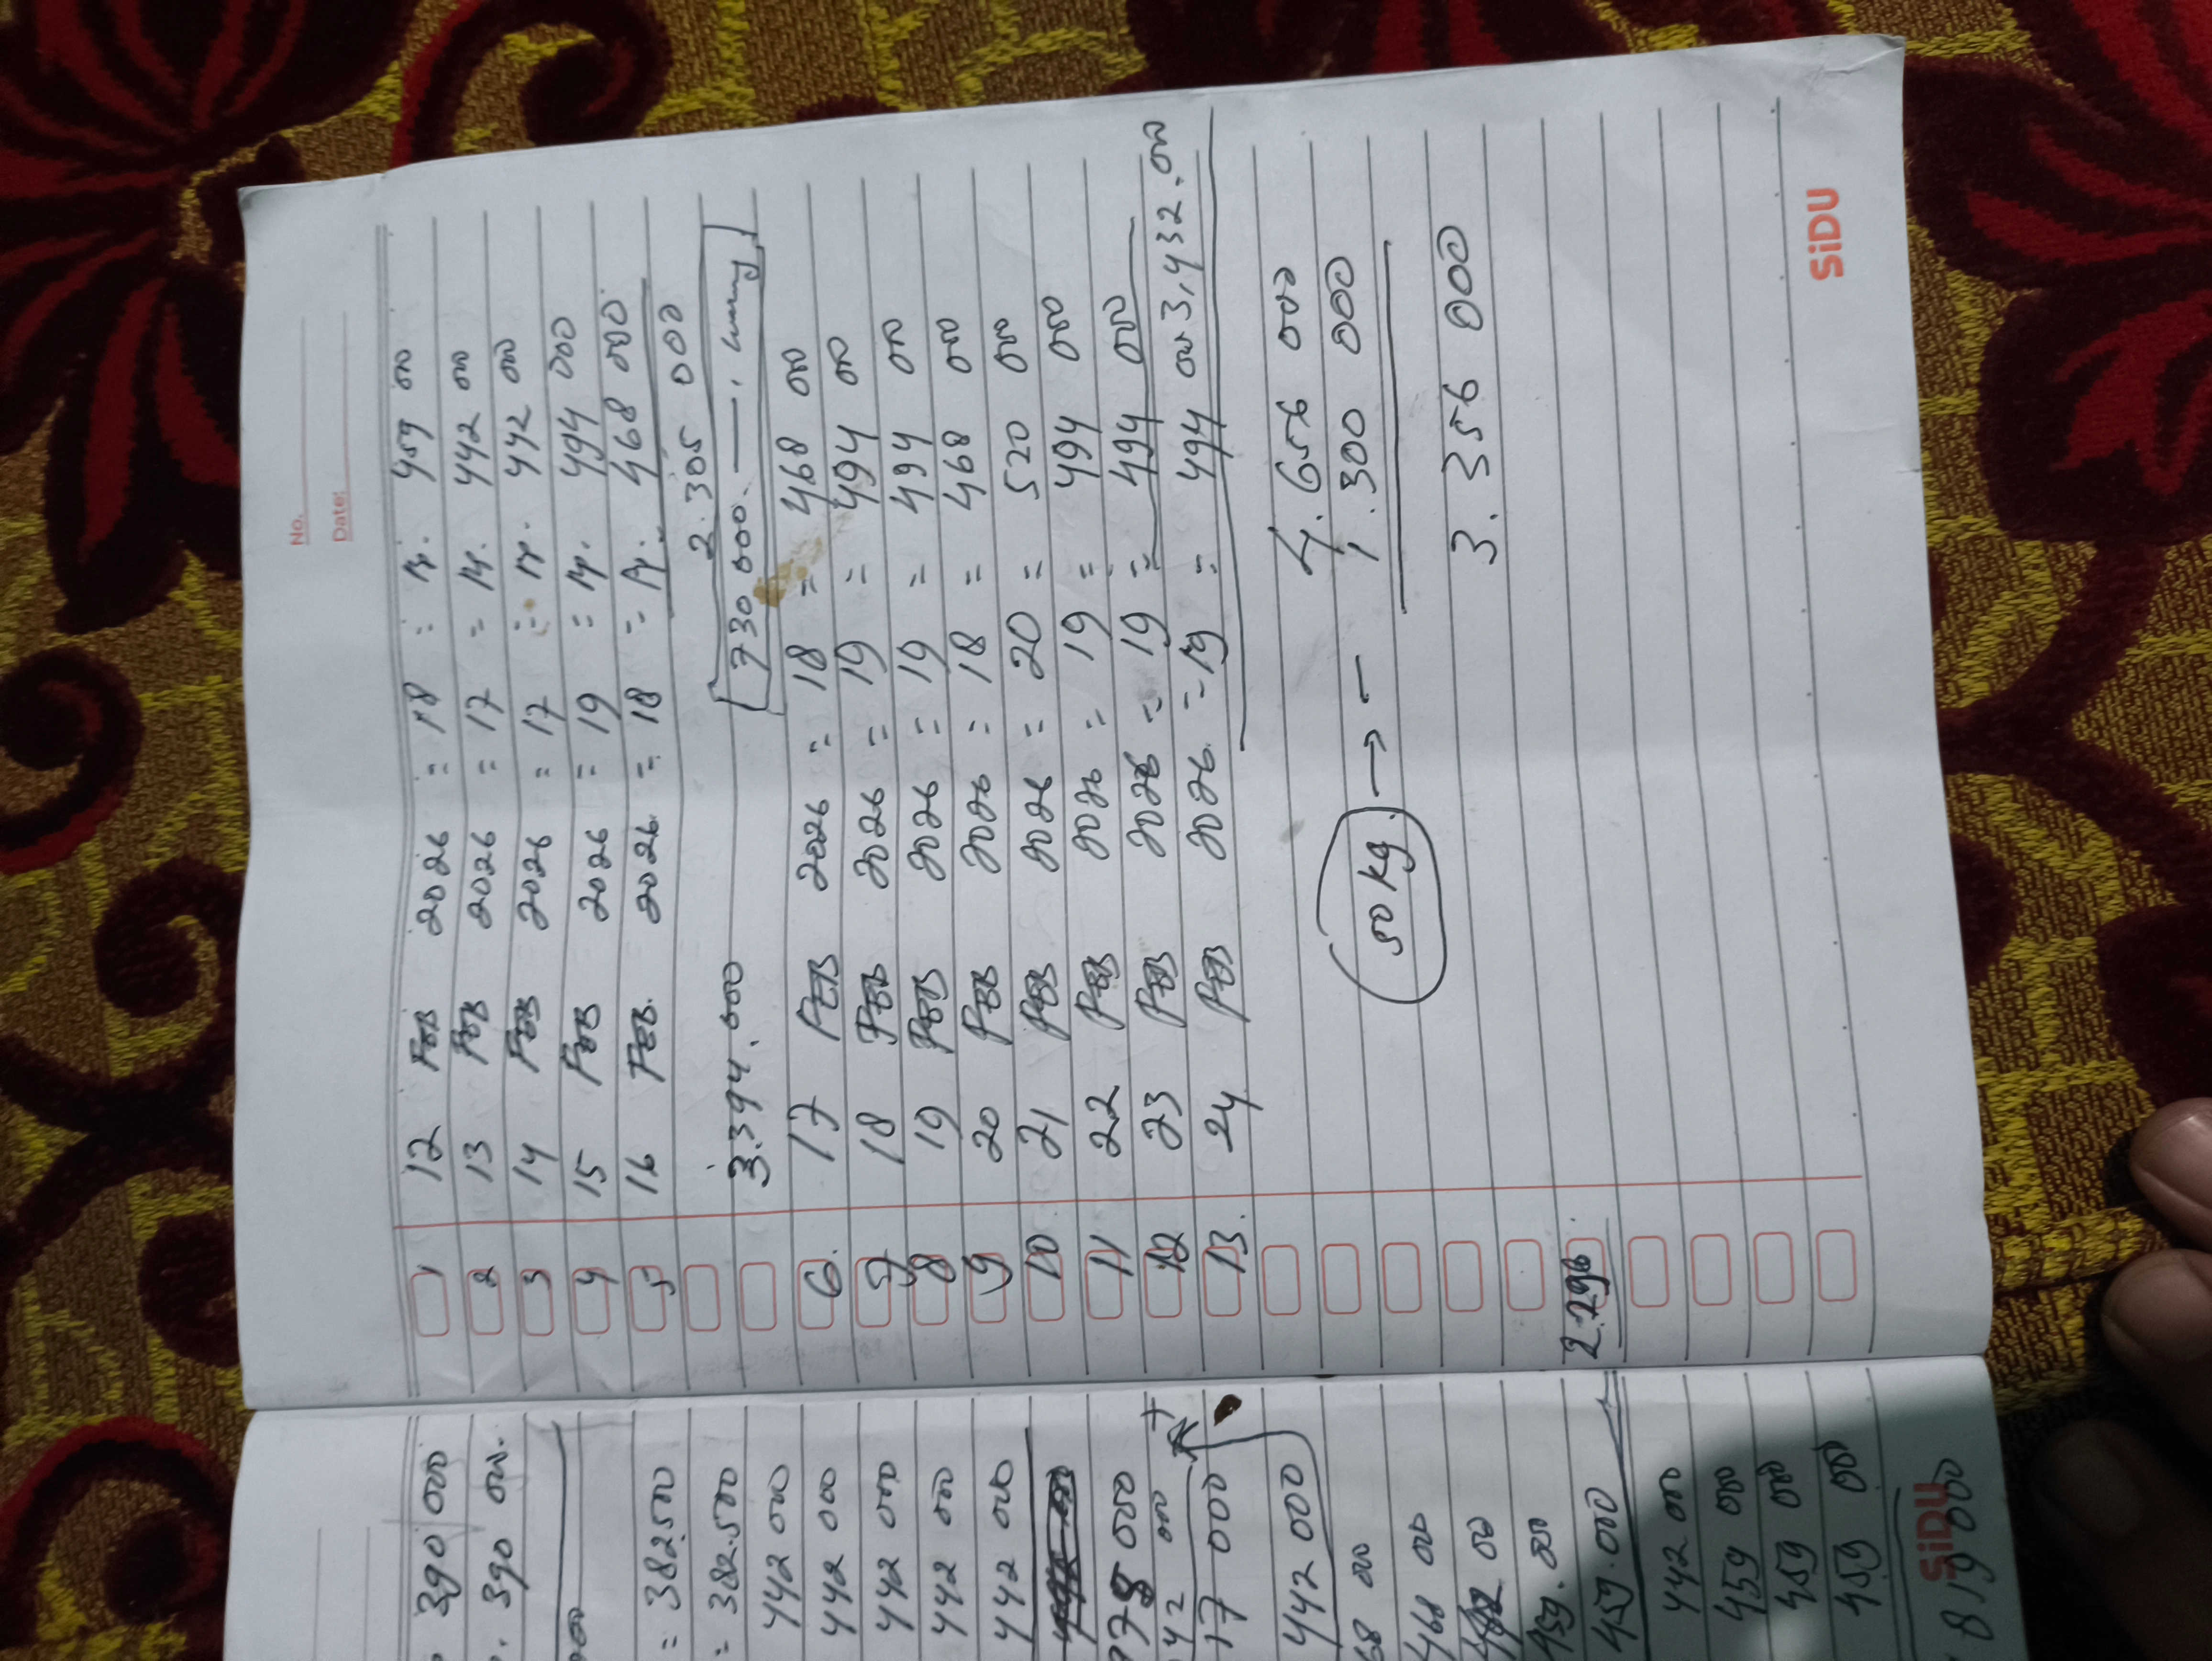 No.
Date:
1 12 FEB 2026 = 18 = Rp. 459 000
2 13 FEB 2026 = 17 = Rp. 442 000
3 14 FEB 2026 = 17 = Rp. 442 000
4 15 FEB 2026 = 19 = Rp. 494 000
5 16 FEB. 2026 = 18 = Rp. 468 000
2.305 000
3.394.000 [730 000.
6. 17 FEB 2026 = 18 = 468 000
7 18 FEB 2026 = 19 = 494 00
8 19 FEB 2026 = 19 = 494 000
9 20 FEB 2026 = 18 = 468 000
10 21 FEB 2026 = 20 = 520 000
11 22 FEB 2026 = 19 = 494 000
12 23 FEB 2026 = 19 = 494 000
13. 24 FEB 2026 = 19 = 494 000 3,432.000
4.656 000
50 kg. → - 1.300 000
3.356 000
2.296.
SiDU
390 000
390 000.
= 382.500
= 382.500
442 000
442 000
442 000
442 000
442 000
978 000
42 000 +
17 000
442 000
68 000
468 000
459.000
459.000
442 000
459 000
459 000
459 000
SiDU
819 000